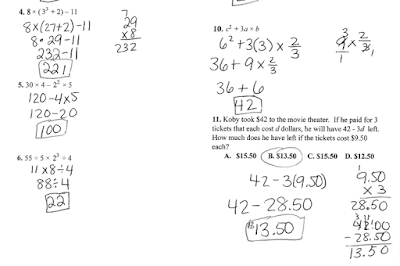 4. 8 × (3³ + 2) – 11
8×(27+2)-11
8·29-11
232-11
221
7
29
×8
232
5. 30 × 4 – 2² × 5
120-4×5
120-20
100
6. 55 ÷ 5 × 2³ ÷ 4
11×8÷4
88÷4
22
10. c² + 3a × b
6²+3(3)×2/3
36+9×2/3
36+6
42
3
9×2
1 3 1
11. Koby took $42 to the movie theater. If he paid for 3
tickets that each cost d dollars, he will have 42 - 3d left.
How much does he have left if the tickets cost $9.50
each?
A. $15.50 B. $13.50 C. $15.50 D. $12.50
42-3(9.50)
42-28.50
$13.50
1
9.50
×3
28.50
3 11
42.00
-28.50
13.50